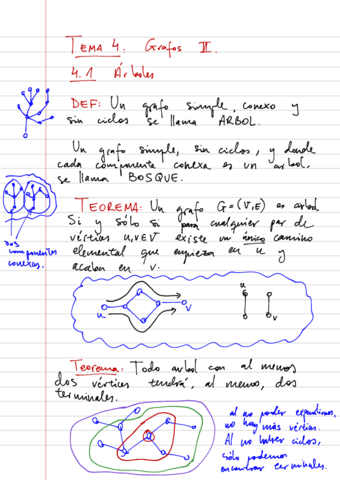 TEMA 4. Grafos II.
4.1 Árboles
DEF: Un grafo simple, conexo y
sin ciclos se llama ARBOL.
Un grafo simple, sin ciclos, y donde
cada componente conexa es un arbol,
se llama BOSQUE.
DOS
componentes
conexas.
TEOREMA: Un grafo G=(V,E) es arbol
Si y sólo si para cualquier par de
vértices u,v∈V existe un único camino
elemental que empieza en u y
acaba en v.
u
v
u
v
Teorema: Todo arbol con al menos
dos vértices tendrá, al menos, dos
terminales.
al no poder expandirnos,
no hay más vértices.
Al no haber ciclos,
sólo podemos
encontrar terminales.